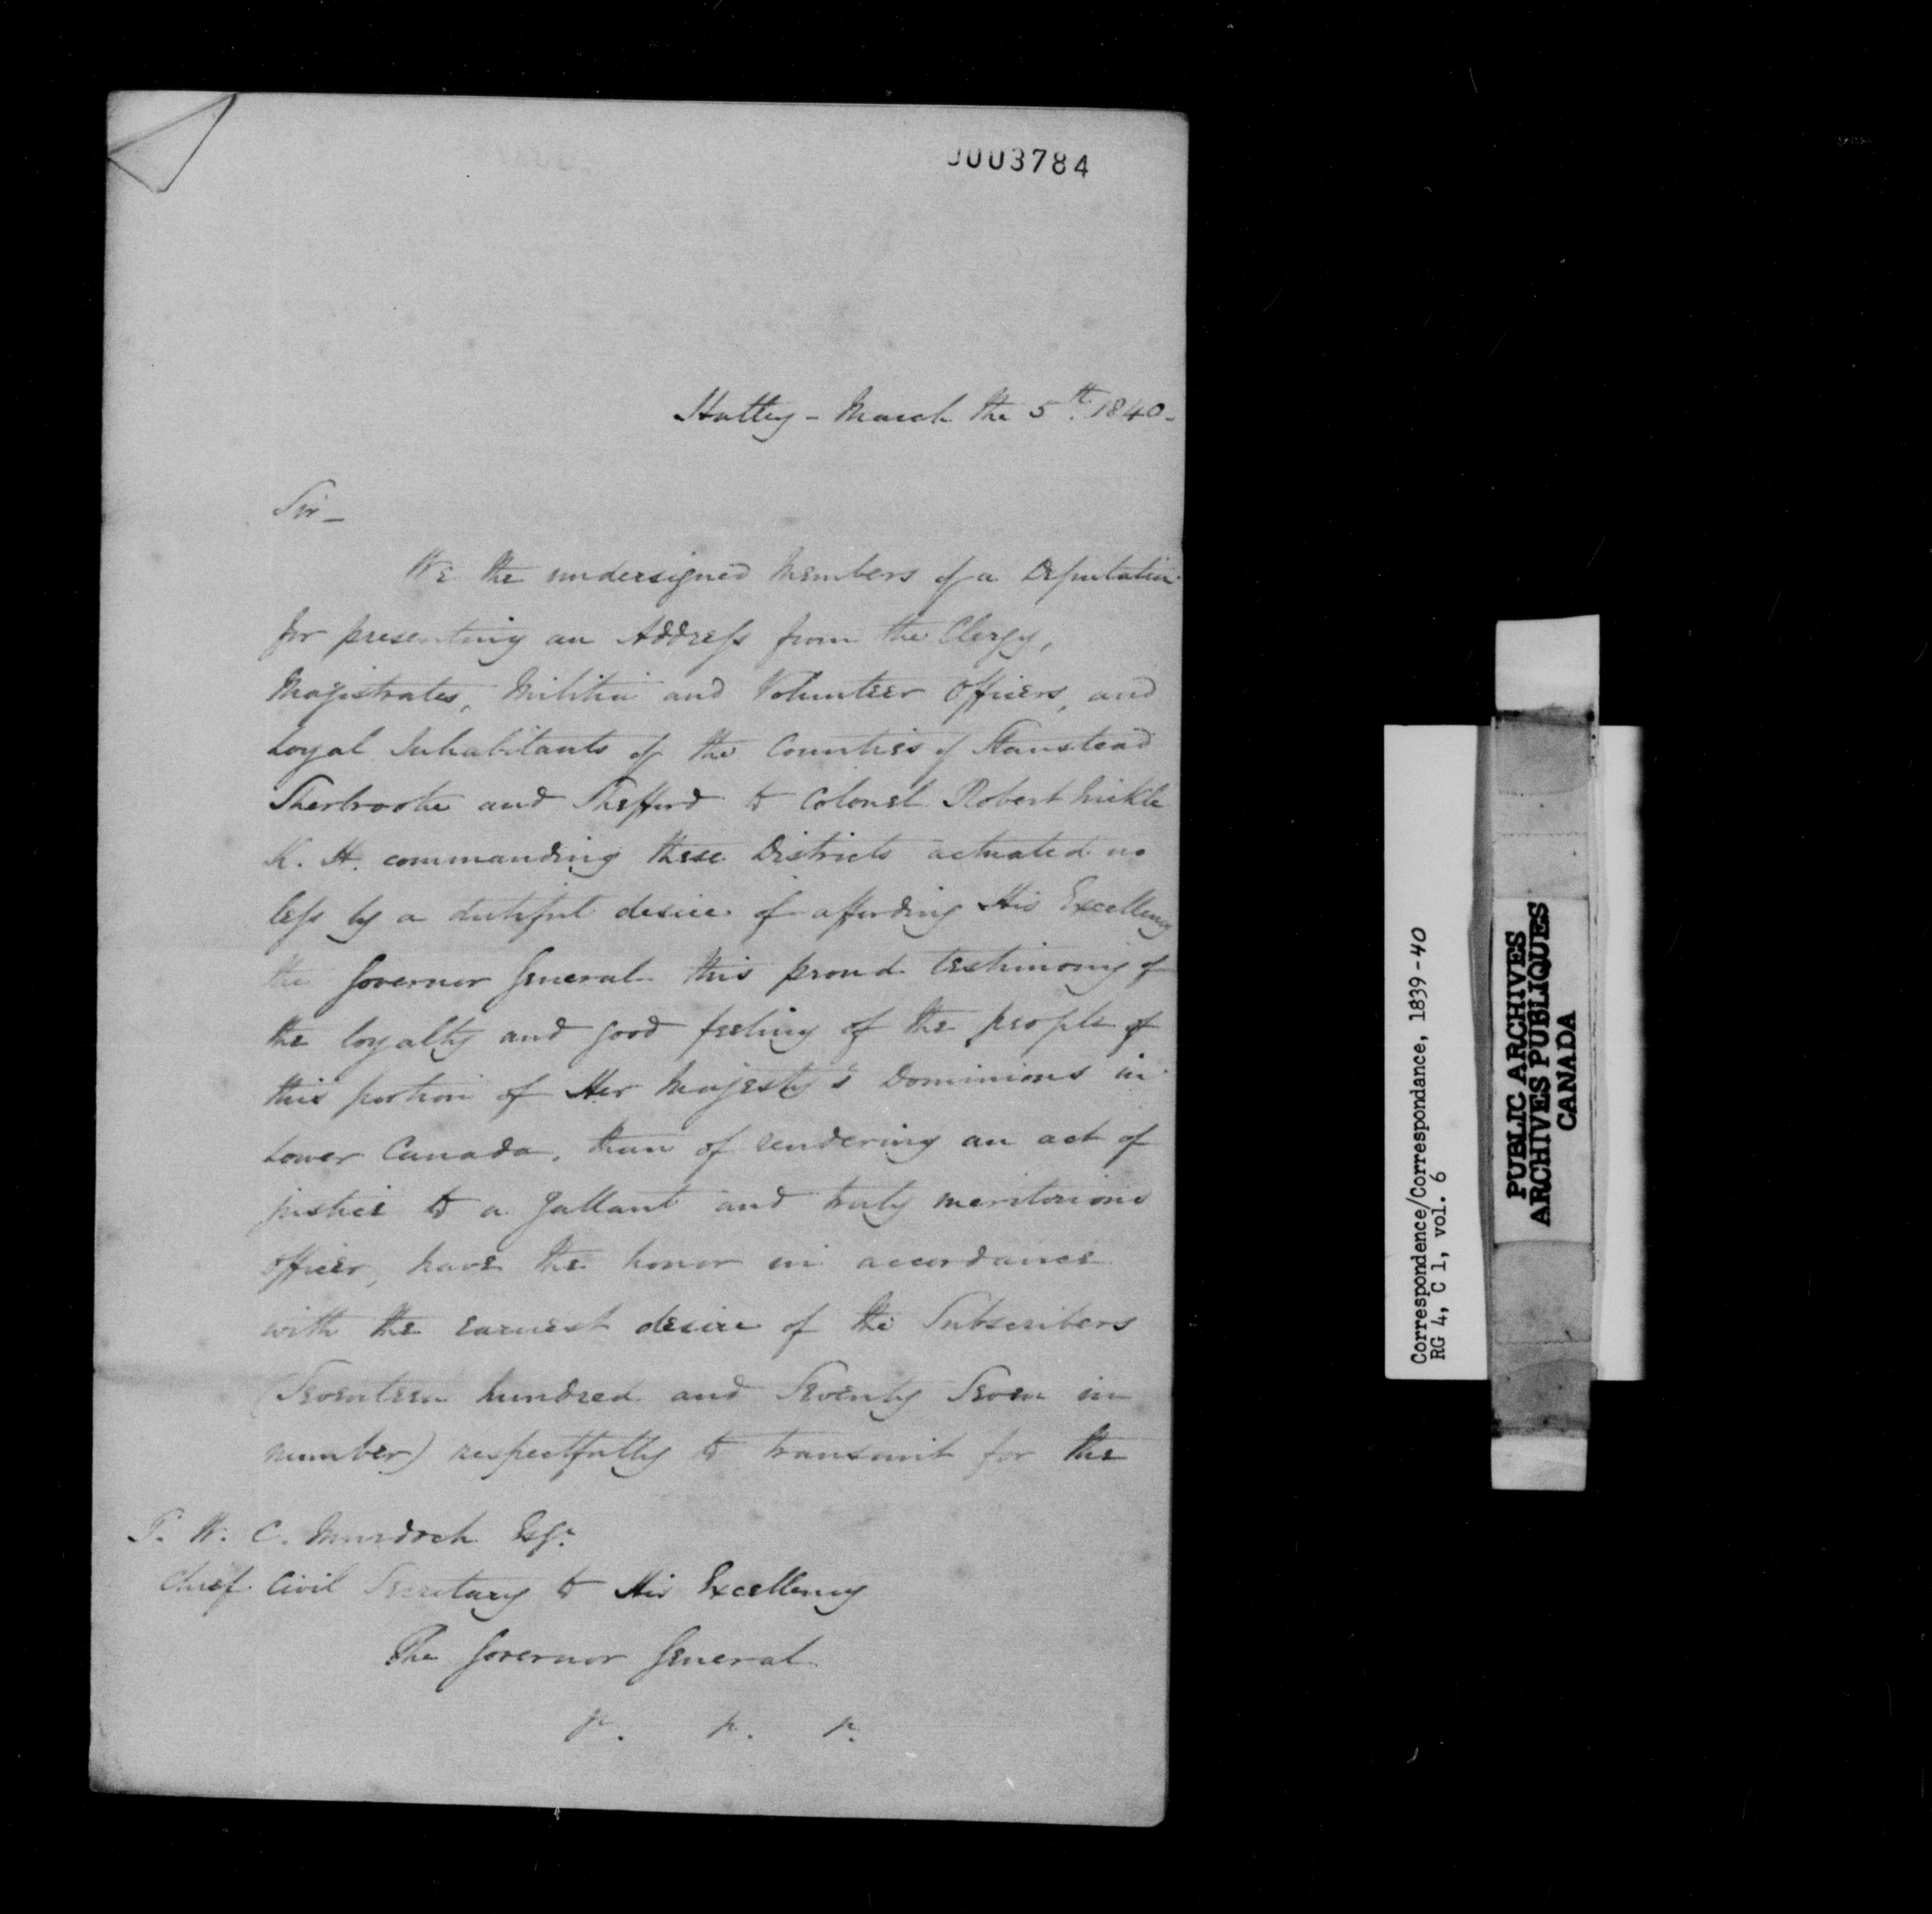 0003784
Hatley - March the 5th. 1840 -
Sir -
We the undersigned Members of a Deputation
for presenting an Address from the Clergy,
Magistrates, Militia and Volunteer Officers, and
Loyal Inhabitants of the Counties of Stanstead
Sherbrooke and Shefford to Colonel Robert Nickle
K. H. commanding these Districts actuated no
less by a dutiful desire of affording His Excellency
the Governor General this proud testimony of
the loyalty and good feeling of the people of
this portion of Her Majesty's Dominions in
Lower Canada, than of rendering an act of
justice to a gallant and truly meritorious
officer, have the honor in accordance
with the earnest desire of the Subscribers
(Seventeen hundred and Seventy Seven in
number) respectfully to transmit for the
T. W. C. Murdoch Esqr.
Chief Civil Secretary to His Excellency
The Governor General
Correspondence/Correspondance, 1839-40
RG 4, C 1, vol. 6
PUBLIC ARCHIVES
ARCHIVES PUBLIQUES
CANADA